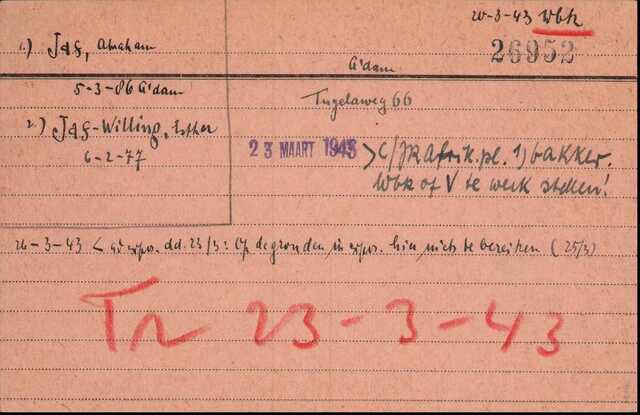 20-3-43 Wbk
1.) Jas, Abraham
26952
A'dam
5-3-86 A'dam
Tugelaweg 66
2.) Jas-Willing, Esther
6-2-77
23 MAART 1943
>C/JR Afrik.pl. 1) bakker.
Wbk of V te werk stellen!
26-3-43 < dd. 23/3: Op de gronden in hin nichts te bereiken (25/3)
Tr 23-3-43